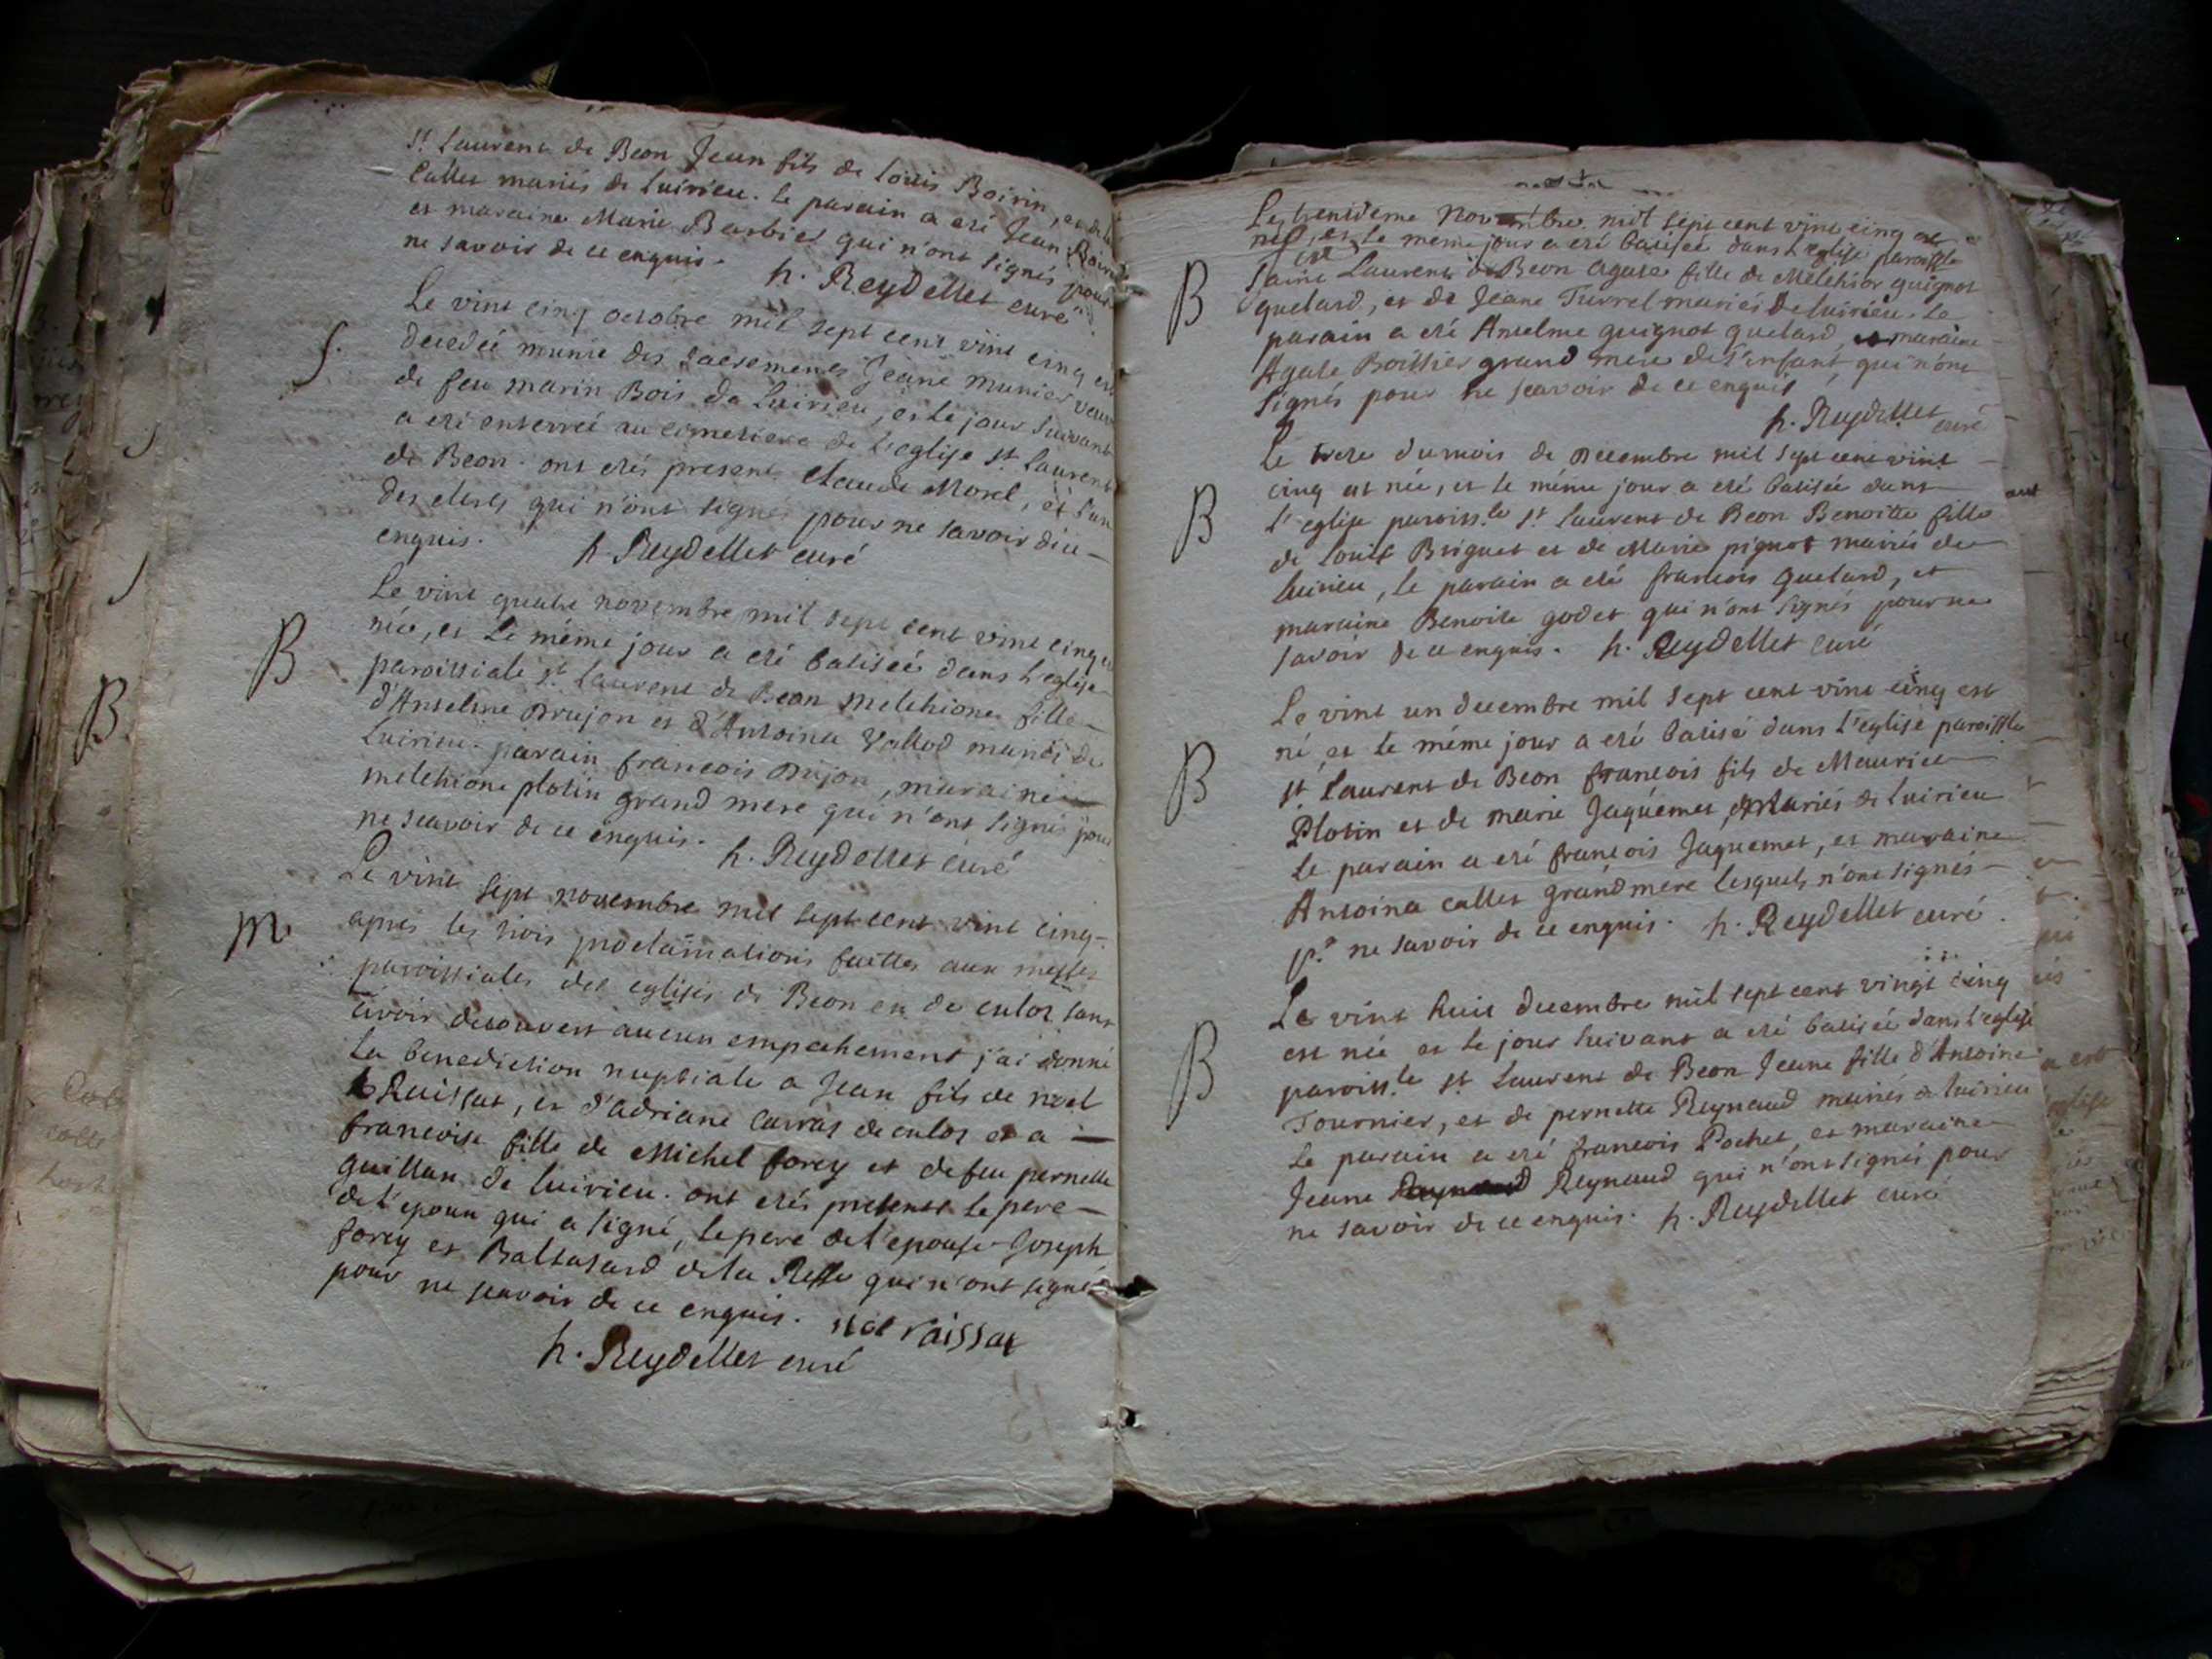 St Laurent de Beon Jean fils de Loüis Boirin, et de
Callet mariés de luirieu. le parain a eté Jean
et maraine Marie Barbiet qui n'ont signés pour
ne savoir de ce enquis. h. Reydellet curé
S.
Le vint cinq octobre mil sept cent vint cinq est
decedée munie des sacremens Jeane Munier veuve
de feu marin Bois de Luirieu, et le jour suivant
a eté enterreé au cimetiere de l'eglise St Laurent
de Beon. ont etés present Claude Morel, et
des clercs qui n'ont signés pour ne savoir de ce
enquis. h. Reydellet curé
B
Le vint quatre novembre mil sept cent vint cinq
née, et le même jour a eté batiseé dans l'eglise
paroissiale st Laurent de Beon Melchione fille
d'Anselme Drujon et d'Antoina Vallod mariés de
Luirieu. parain francois Drujon, maraine
melchione plotin grand mere qui n'ont signés pour
ne scavoir de ce enquis. h. Reydellet curé
m.
Le vint sept novembre mil sept cent vint cinq
apres les trois proclamations faittes aux messes
paroissiales des eglises de Beon et de culoz sans
avoir decouvert aucun empechement j'ai donné
la benediction nuptiale a Jean fils de noel
Ruissat, et d'adriane carras de culoz et a
francoise fille de Michel forey et de feu pernette
guillan de luirieu. ont etés presents le pere
de l'epoux qui a signé, le pere de l'epouse Joseph
forey et Baltasard de la Resse qui n'ont signés
pour ne scavoir de ce enquis. noel raissat
h. Reydellet curé
Le trentieme Novembre mil sept cent vint cinq est
née, et le meme jour a eté batiseé dans l'eglise paroissle
B
saint Laurent de Beon Agate fille de Melchior guignot
quelard, et de Jeane Turrel mariés de luirieu. le
parain a eté Anselme guignot quelard, et maraine
Agate Boissier grand mere de l'enfant, qui n'ont
signés pour ne scavoir de ce enquis
h. Reydellet curé
Le du mois de Decembre mil sept cent vint
cinq est née, et le même jour a eté batisée dans
B
l'eglise paroiss.le st Laurent de Beon Benoitte fille
de Louis Briguet et de Marie pignot mariés de
luirieu, le parain a eté francois quelard, et
maraine Benoite godet qui n'ont signés pour ne
savoir de ce enquis. h. Reydellet curé
Le vint un decembre mil sept cent vint cinq est
né, et le même jour a eté batisé dans l'eglise paroissle
B
st. Laurent de Beon francois fils de Maurice
Plotin et de marie Jaquemet, mariés de luirieu
le parain a eté francois Jaquemet, et maraine
Antoina callet grand mere lesquels n'ont signés
pr ne savoir de ce enquis. h. Reydellet curé.
Le vint huit decembre mil sept cent vingt cinq
est née et le jour suivant a eté batiseé dans l'eglise
B
paroiss.le st Laurent de Beon Jeane fille d'Antoine
Tournier, et de pernette Reynaud mariés de luirieu
le parain a eté francois Pochet, et maraine
Jeane Reynaud qui n'ont signés pour
ne savoir de ce enquis. h. Reydellet curé